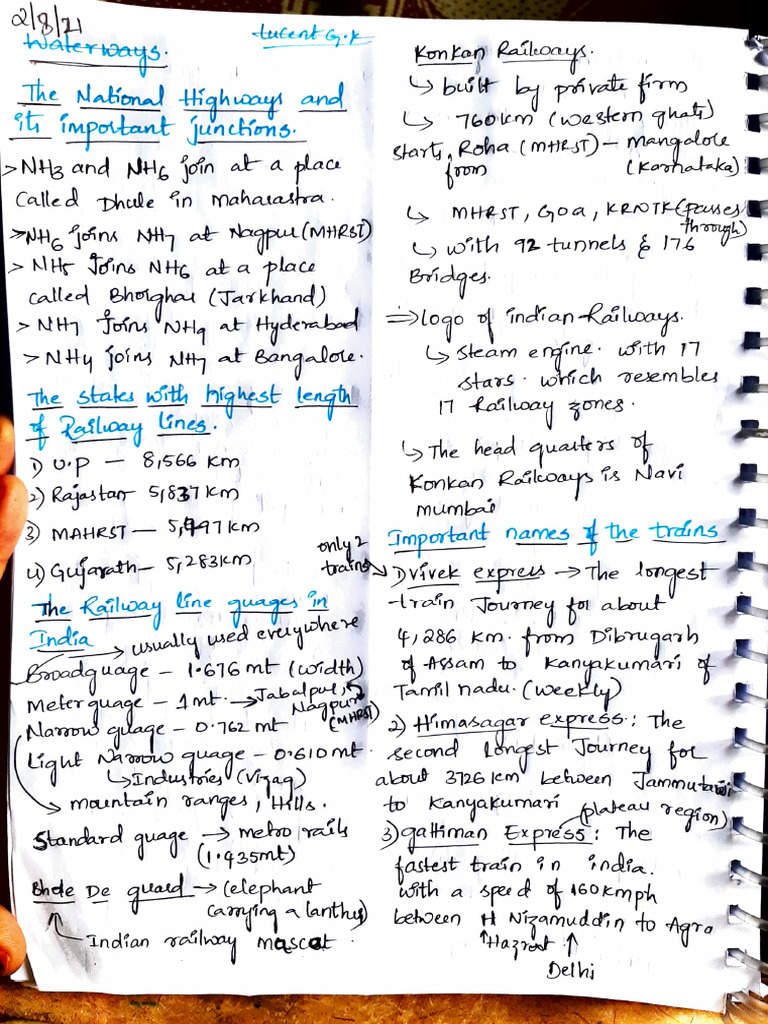 2/8/21
Lucent G.K
Waterways.
The National Highways and
its important junctions.
> NH3 and NH6 join at a place
called Dhule in Maharastra.
> NH6 joins NH7 at Nagpur (MHRST)
> NH5 Joins NH6 at a place
called Bholghar (Jarkhand)
> NH7 Joins NH9 at Hyderabad
> NH4 joins NH7 at Bangalore.
The states with highest length
of Railway lines.
1) U.P — 8,566 km
2) Rajastan — 5,837 km
3) MAHRST — 5,997 km
4) Gujarath — 5,283 km
The Railway line guages in
India
→ usually used everywhere
Broadguage — 1.676 mt (width)
Meterguage — 1 mt. → Jabalpur,
Nagpur
(MHRST)
Narrow guage — 0.762 mt
Light Narrow guage — 0.610 mt.
↳ Industries (Vizag)
→ mountain ranges, Hills.
Standard guage → metro rails
(1.435mt)
Bhole De guard → (elephant
carrying a lanthus)
Indian railway mascot.
Konkan Railways.
↳ built by private firm
↳ 760 km (western ghats)
starts from Roha (MHRST) — mangalore
(Karnataka)
↳ MHRST, GOA, KRNTK (passes
through)
↳ with 92 tunnels & 176
Bridges.
⇒ logo of indian Railways.
↳ steam engine. with 17
stars. which resembles
17 Railway zones.
↳ The head quaters of
Konkan Railways is Navi
mumbai
Important names of the trains
only 2
trains
1) vivek express → The longest
train Journey for about
4,286 km. from Dibrugarh
of Assam to Kanyakumari of
Tamil nadu. (weekly)
2) Himasagar express: The
second longest Journey for
about 3726 km between Jammutawi
to Kanyakumari
(plateau region)
3) gattiman Express: The
fastest train in india.
with a speed of 160 kmph
between H Nizamuddin to Agra
Hazrat
Delhi